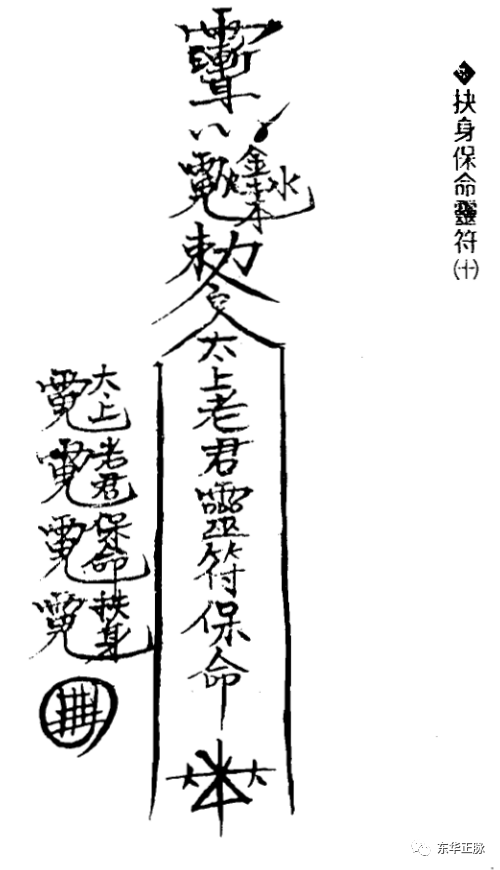 ◆扶身保命靈符(十)
金
木
水
敕令
太上老君靈符保命
太上
老君
保命
扶身
大
大
东华正脉